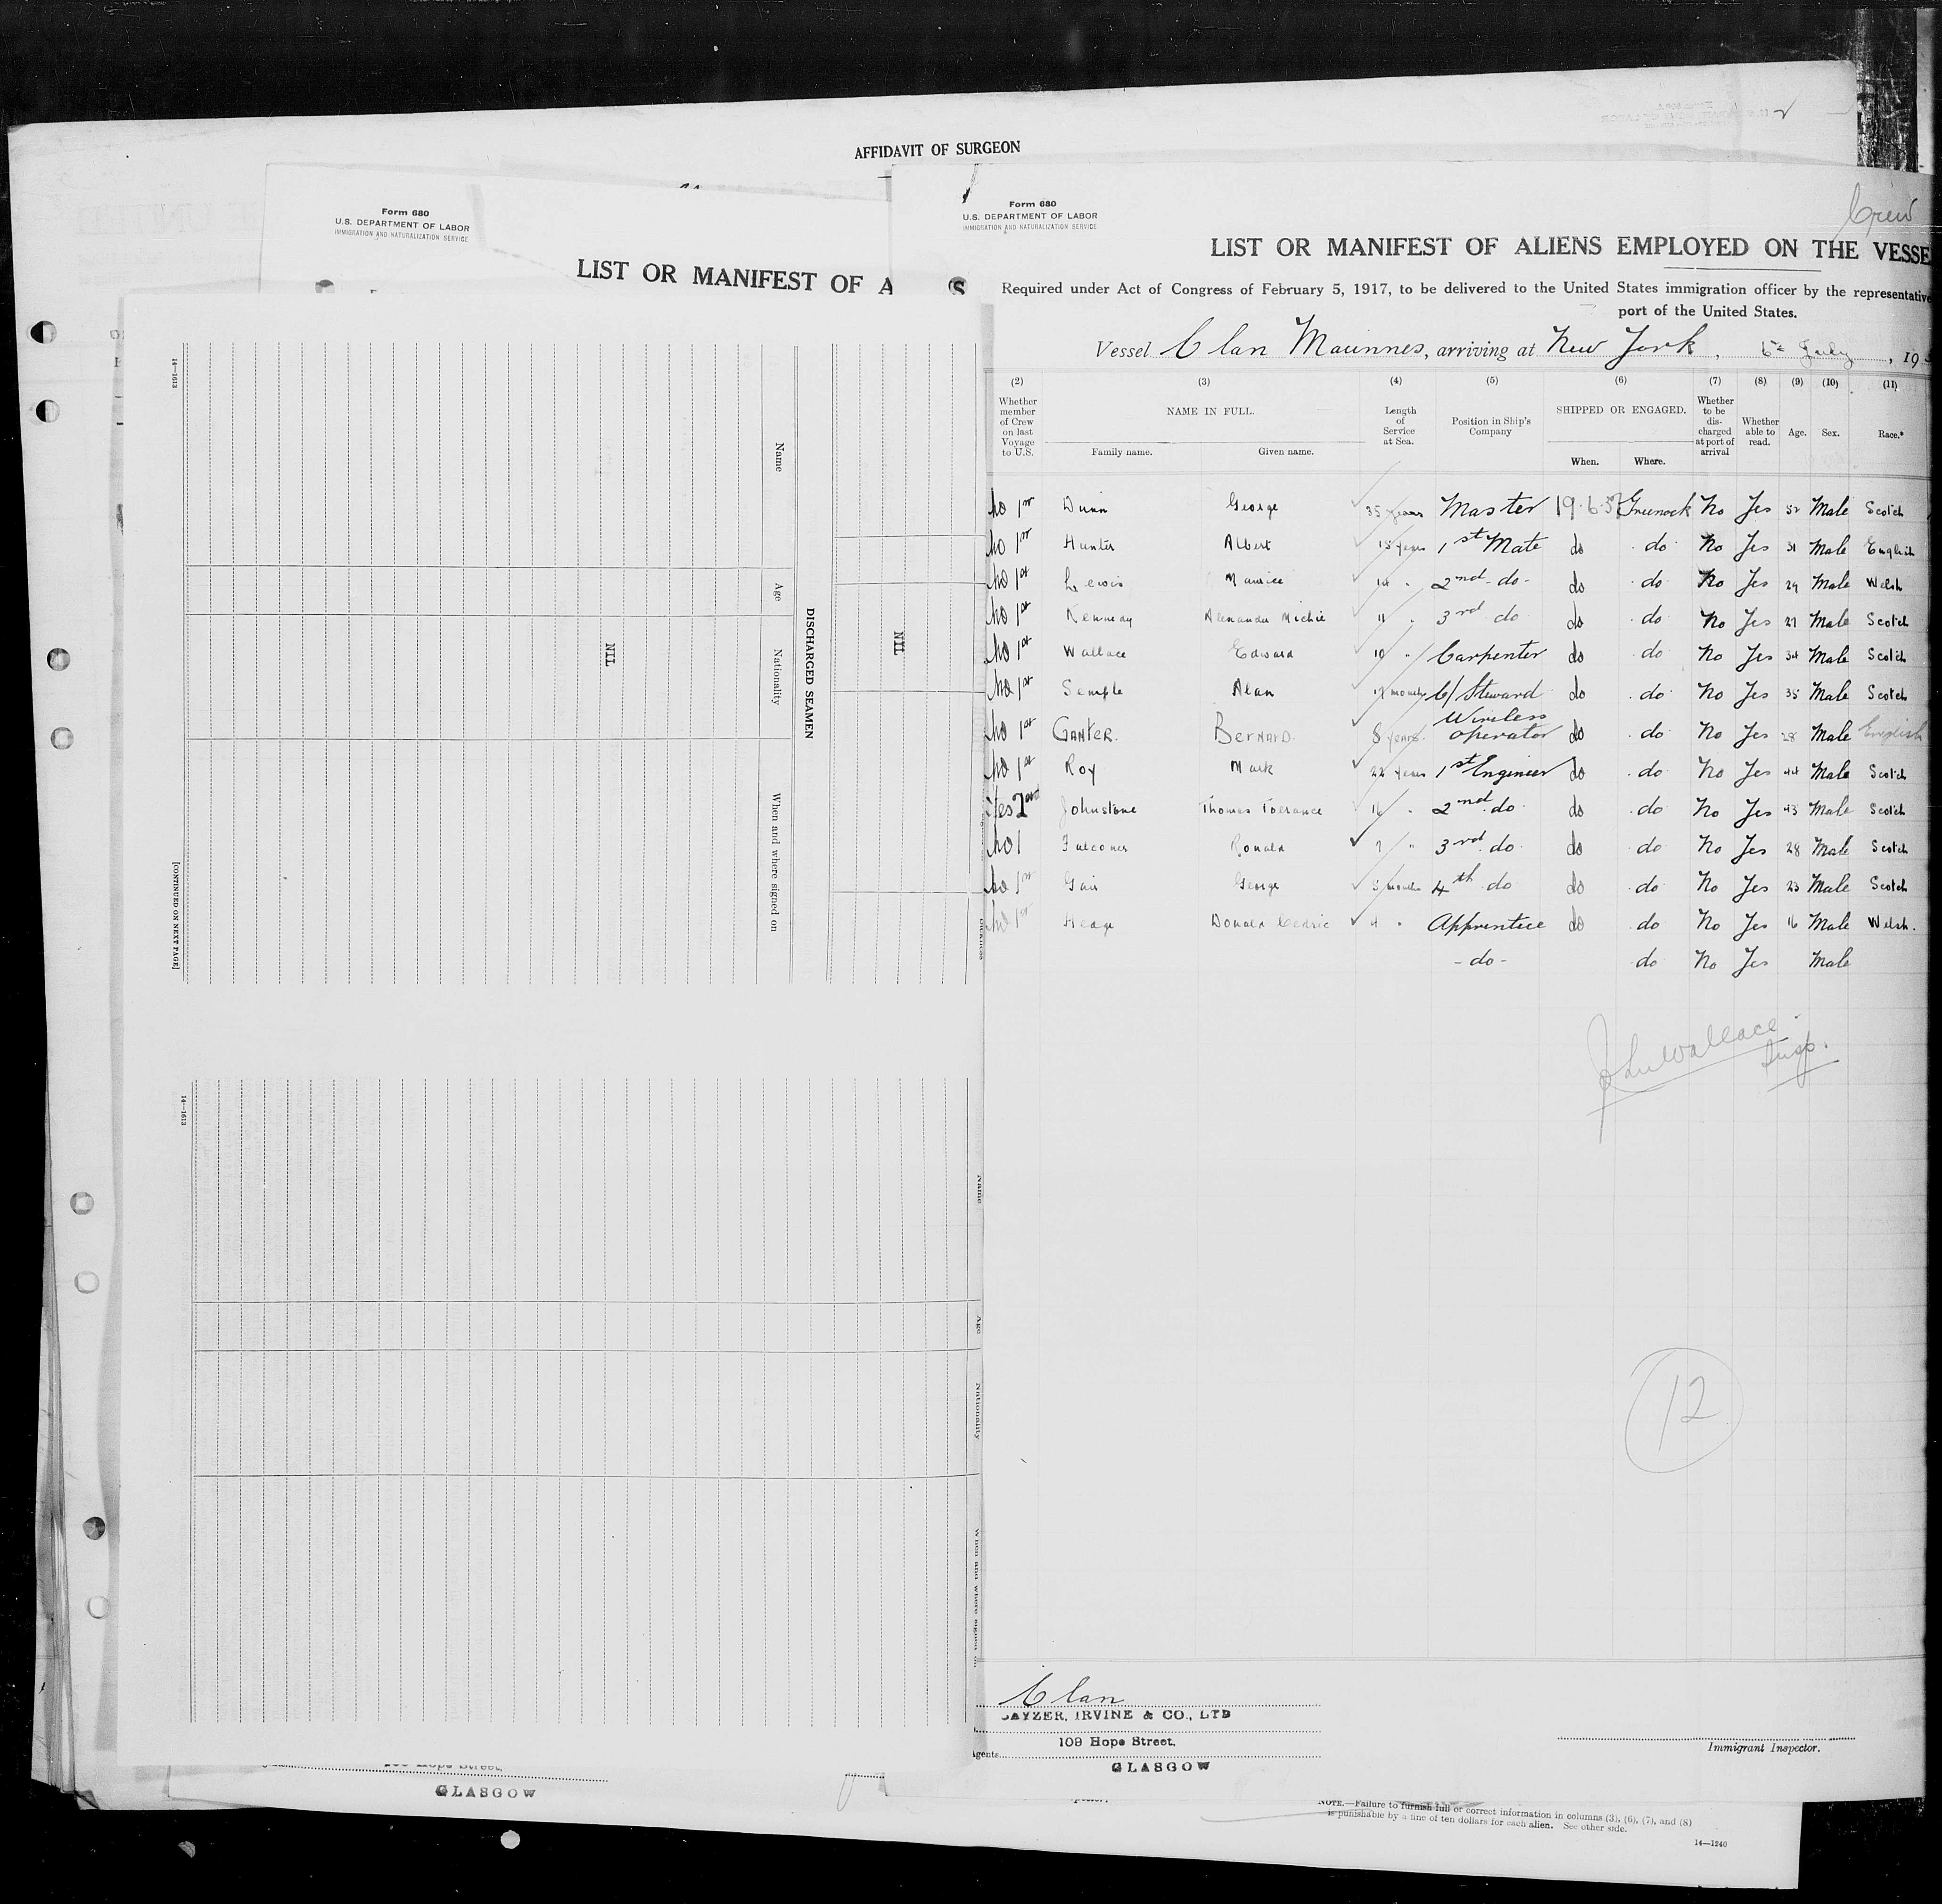 AFFIDAVIT OF SURGEON
Form 680
U.S. DEPARTMENT OF LABOR
IMMIGRATION AND NATURALIZATION SERVICE
LIST OR MANIFEST OF A
S
14—1613
Name
Age
Nationality
When and where signed on
DISCHARGED SEAMEN
NIL
NIL
[CONTINUED ON NEXT PAGE]
14—1613
Name
Age
Nationality
GLASGOW
Crew
Form 680
U.S. DEPARTMENT OF LABOR
IMMIGRATION AND NATURALIZATION SERVICE
LIST OR MANIFEST OF ALIENS EMPLOYED ON THE VESSE
Required under Act of Congress of February 5, 1917, to be delivered to the United States immigration officer by the representative
port of the United States.
Vessel Clan Macinnes, arriving at New York, 6th July, 19
(2) (3) (4) (5) (6) (7) (8) (9) (10) (11)
Whether member of Crew on last Voyage to U.S. NAME IN FULL. Length of Service at Sea. Position in Ship's Company SHIPPED OR ENGAGED. Whether to be discharged at port of arrival Whether able to read. Age. Sex. Race.*
Family name. Given name. When. Where.
No 1st Dunn George 35 years Master 19.6.37 Greenock No Yes 52 Male Scotch
No 1st Hunter Albert 15 years 1st Mate do do No Yes 31 Male English
No 1st Lewis Maurice 14 " 2nd do do do No Yes 29 Male Welsh
No 1st Kennedy Alexander Michie 11 " 3rd do do do No Yes 27 Male Scotch
No 1st Wallace Edward 10 " Carpenter do do No Yes 34 Male Scotch
No 1st Semple Alan months C/Steward do do No Yes 35 Male Scotch
No 1st GANTER. BERNARD. 8 years Wireless operator do do No Yes 28 Male English
No 1st Roy Mark 22 years 1st Engineer do do No Yes 44 Male Scotch
Yes 2nd Johnstone Thomas Torrance 16 " 2nd do do do No Yes 43 Male Scotch
No 1 Falconer Ronald 7 " 3rd do do do No Yes 28 Male Scotch
No 1st Gair George 5 months 4th do do do No Yes 23 Male Scotch
No 1st Hedge Donald Cedric 4 " Apprentice do do No Yes 16 Male Welsh.
- do - do No Yes Male
Wallace
Insp.
12
Clan
CAYZER, IRVINE & CO., LTD
109 Hope Street,
Agents
GLASGOW
Immigrant Inspector.
NOTE.—Failure to furnish full or correct information in columns (3), (6), (7), and (8)
is punishable by a fine of ten dollars for each alien. See other side.
14—1240